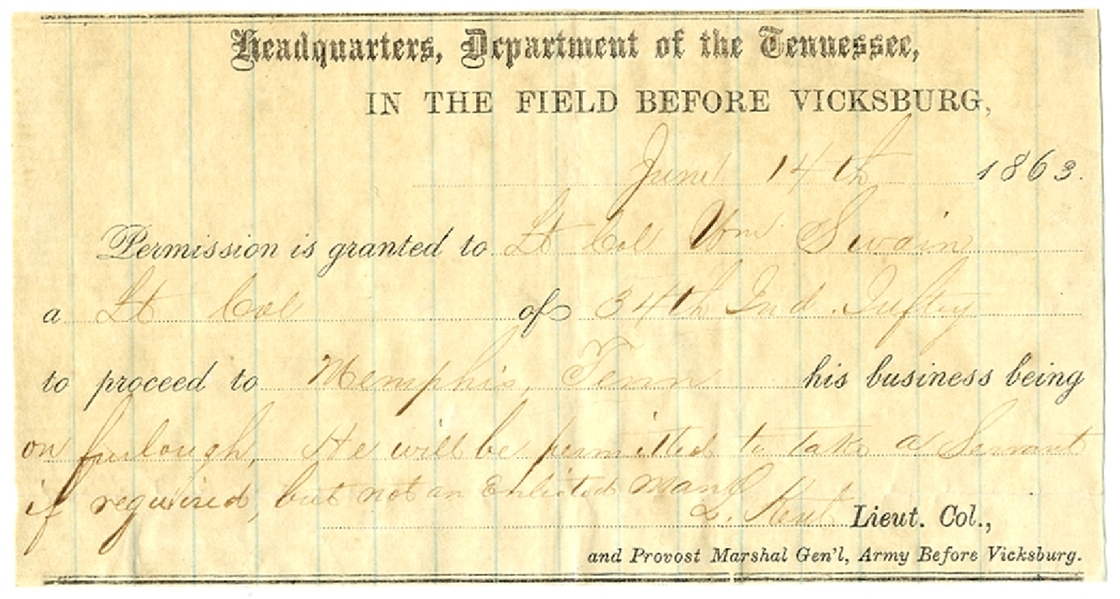 Headquarters, Department of the Tennessee,
IN THE FIELD BEFORE VICKSBURG,
June 14th 1863.
Permission is granted to Lt Col Wm Swain
a Lt Col of 34th Ind. Inftry
to proceed to Memphis, Tenn his business being
on furlough, He will be permitted to take a Servant
if required, but not an Enlisted Man
L. Kent Lieut. Col.,
and Provost Marshal Gen'l, Army Before Vicksburg.